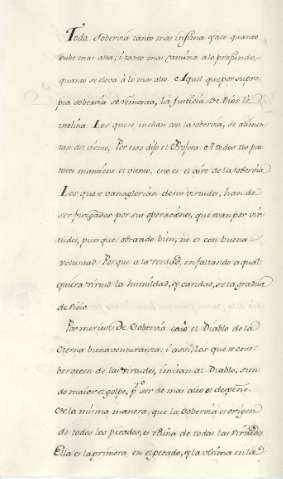 Toda Soberbia tanto mas infima yace quanto
sube mas alta; i tanto mas camina a lo profundo,
quanto se eleva à lo mas alto. Aquel que por su pro-
pia soberbia se vanaria, la Justicia de Dios le
inclina. Los que se inchan con la soberbia, se alimen-
tan del viento, Por eso dijo el Profeta: A todos tus pas-
tores mantiene el viento, esto es el aire de la sobervia
Los que se vanaglorian de sus virtudes, han de
ser juzgados por sus operaciones, que usan por vir-
tudes, porque obrando bien, no es con buena
voluntad. Porque a la verdad, en faltando a qual-
quiera virtud la humildad, y caridad, se la gradua
de vicio.
Por merito de Soberbia caiò el Diablo de la
eterna buenaventuranza; i assi, los que se enso-
berbecen de las virtudes, imitan al Diablo, sien-
do maior el golpe, pr ser de mas alto el despeño
De la misma manera, que la Soberbia es origen
de todos los pecados, es Ruina de todas las virtudes
Ella es la primera en el pecado, y la ultima en la